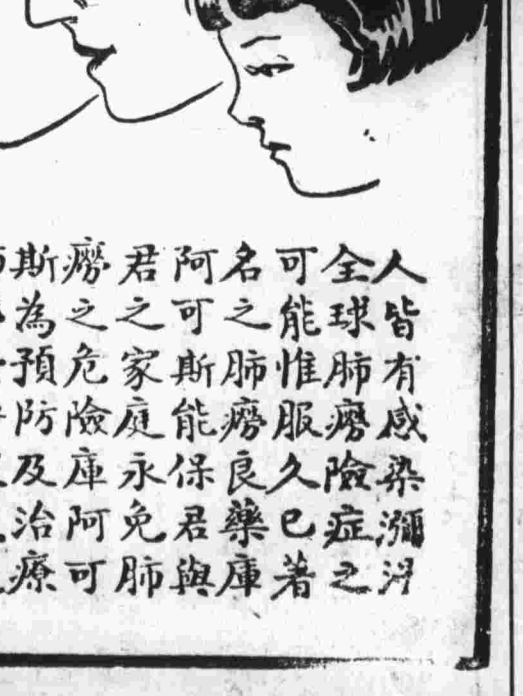 人皆有感染瀰
全球肺癆險症之
可能惟服久已著
名之肺癆良藥庫
阿可斯能保君與
君之家庭永免肺
癆之危險庫阿可
斯為預防及治療